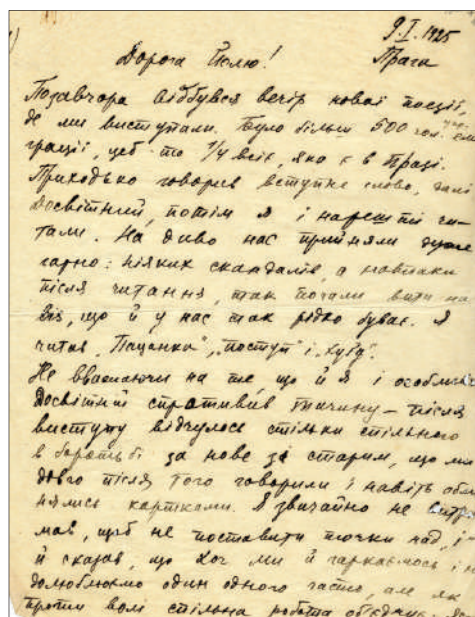 9.I.1925
Прага
Дорога Йелю!
Позавчора відбувся вечір нової поезії,
де ми виступали. Було більш 500 чол. емі
грації, цеб-то 1/4 всіє, яко є в Празі.
Приходько говорив вступне слово, далі
Досвітний, потім я і нарешті чи-
тали. На диво нас прийняли дуже
гарно: ніяких скандалів, а навпаки
після читання, так почали вити на
біз, що й у нас так рідко буває. Я
читав „Паценка", „поступ" і
Не вважаючи на те, що й я і особливо
Досвітний спротивив Тичину – після
виступу відчулось стільки спільного
в боротьбі за нове зі старим, що ми
довго після того говорили і навіть обмі
нялись картками. Я звичайно не витри
мав, щоб не поставити точки над „і"
й сказав, що хоч ми й гаркаємось і н
долюблюємо один одного часто, але як
проти волі спільна робота об'єднує.